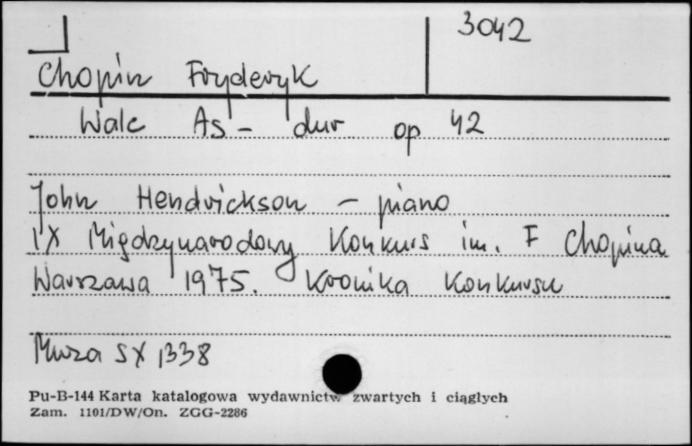 3042
Chopin Fryderyk
Walc As-dur op 42
John Hendrickson - piano
IX Międzynarodowy Konkurs im. F Chopina
Warszawa 1975. Kronika Konkursu
Muza SX 1338
Pu-B-144 Karta katalogowa wydawnictw zwartych i ciągłych
Zam. 1101/DW/On. ZGG-2286